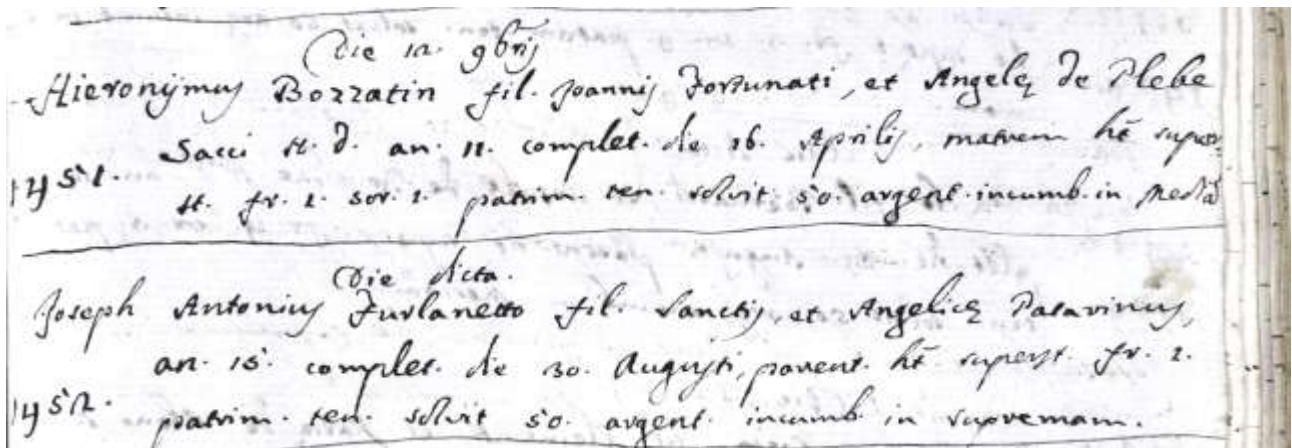 Die 12. 9brij
Hieronymus Bozzatin fil. Joannis Fortunati, et Angelę de Plebe
Sacci st. d. an. 11. complet. die 16. Aprilis, matrem ht̄ super
1451. st. fr. 2. sor. 2. patrim. ten. solvit 50. argent. incumb. in Media
Die dicta.
Joseph Antonius Furlanetto fil. Sanctis, et Angelicę Patavinus,
an. 15. complet. die 30. Augusti, parent. ht̄ superst. fr. 2.
1452. patrim. ten. solvit 50. argent. incumb. in supremam.